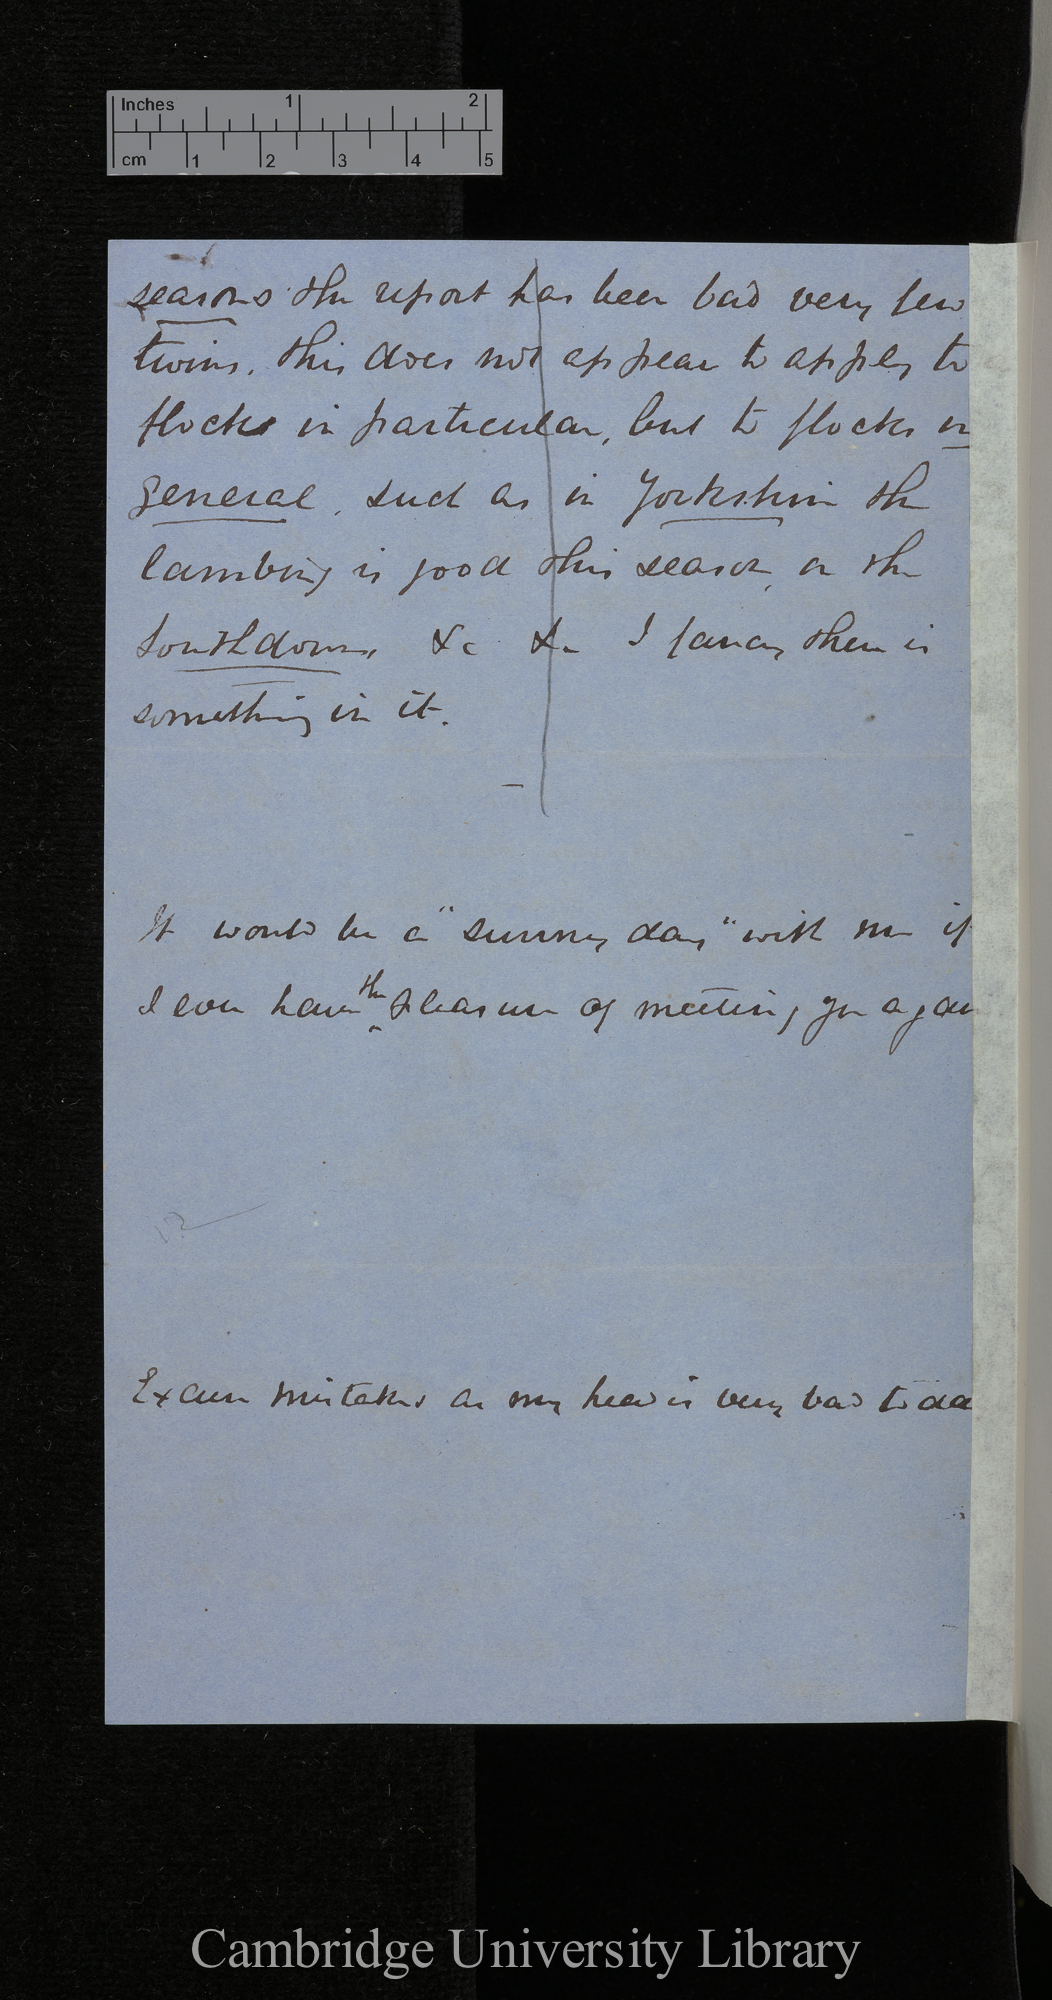 Inches 1 2
cm 1 2 3 4 5
seasons the report has been bad very few
twins. this does not appear to apply to
flocks in particular, but to flocks in
general, such as in Yorkshire the
lambing is good this season, or the
Southdowns &c &c I fancy there is
something in it.
It would be a "sunny day" with me if
I ever have the pleasure of meeting you again
Excuse mistakes as my head is very bad to da
Cambridge University Library